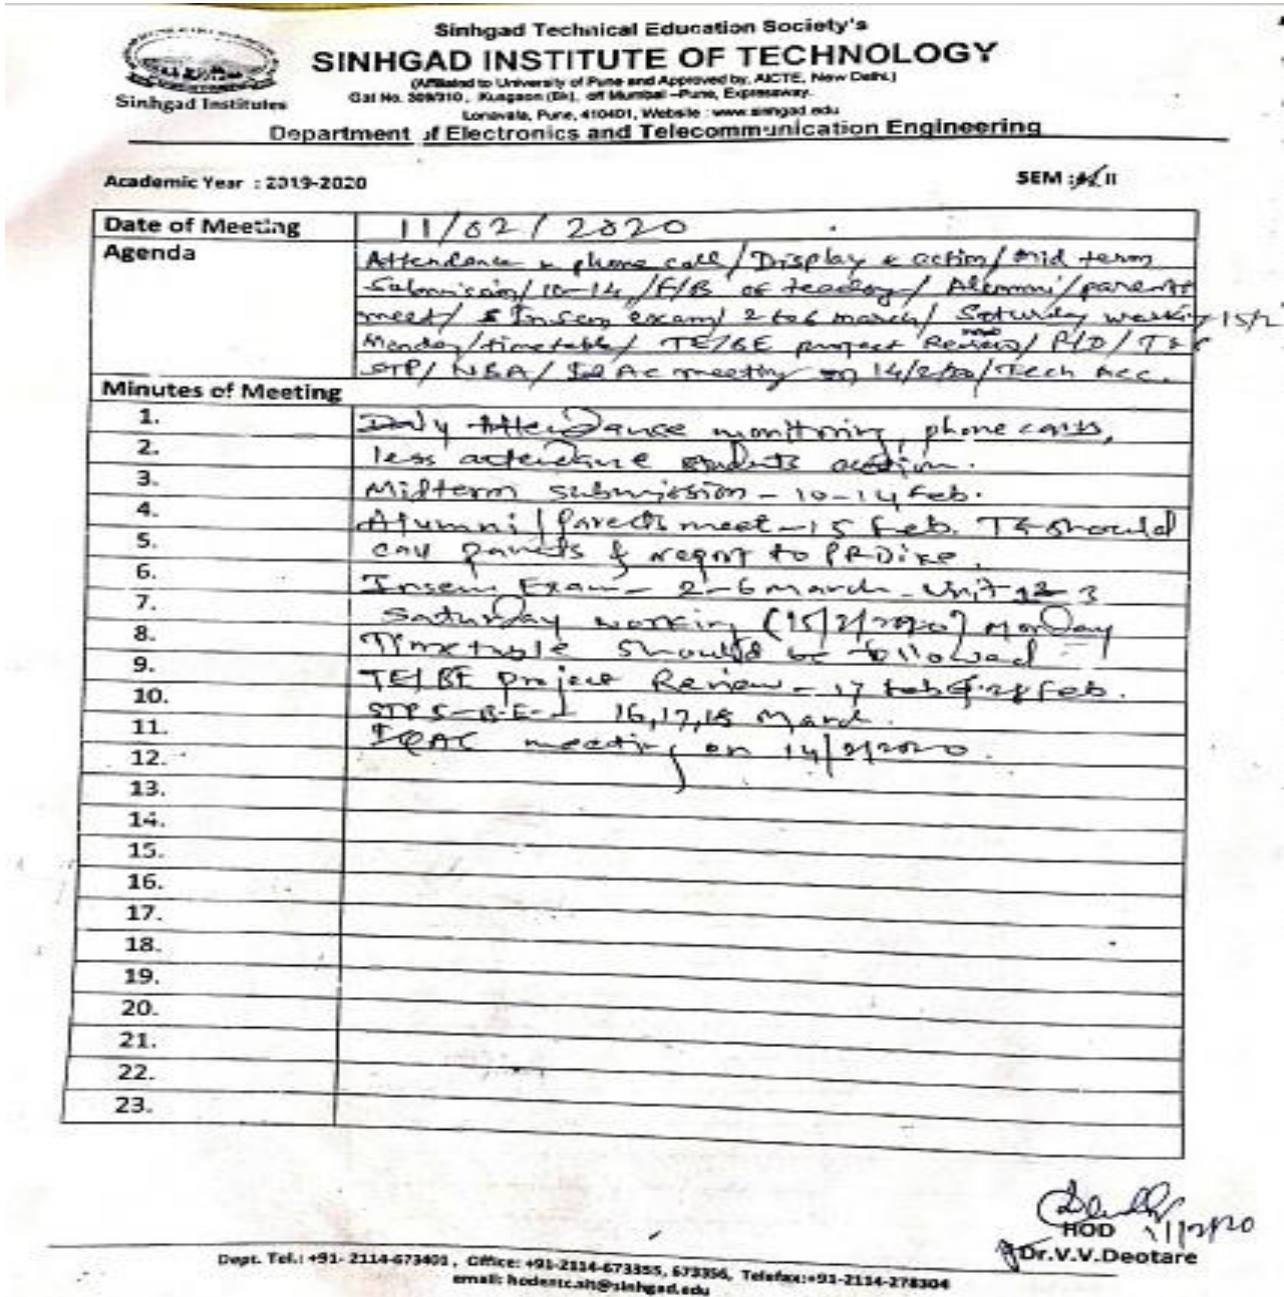 Sinhgad Technical Education Society's
SINHGAD INSTITUTE OF TECHNOLOGY
(Affiliated to University of Pune and Approved by, AICTE, New Delhi.)
Gat No. 309/310, Kusgaon (Bk), off Mumbai –Pune, Expressway.
Lonavala, Pune, 410401, Website : www.sinhgad.edu
Sinhgad Institutes
Department of Electronics and Telecommunication Engineering
Academic Year : 2019-2020
SEM : II
Date of Meeting 11/02/2020
Agenda Attendance phone call/Display & action/mid term
Submission/10-14/F/B of teaching/ Alumni/parents
meet/ Insem exam/ 2 to 6 march/ Saturday working 15/2
Monday/timetable/ TE/BE project Review/ P/D/ T&P
STP/ NBA/ IQAC meeting on 14/2/20/Tech Acc.
Minutes of Meeting
1. Daily Attendance monitoring, phone calls,
2. less attendance students action.
3. Midterm submission - 10-14 Feb.
4. Alumni/Parents meet - 15 Feb. should
5. call parents & report to
6. Insem Exam - 2-6 march - Unit 3
7. Saturday working (15/2/2020) Monday
8. Timetable should be followed
9. TE/BE Project Review - 17 feb 28 Feb.
10. 16,17,18 March.
11. IQAC meeting on 14/2/2020.
12.
13.
14.
15.
16.
17.
18.
19.
20.
21.
22.
23.
HOD
Dr.V.V.Deotare
Dept. Tel.: +91- 2114-673401, Office: +91-2114-673355, 673356, Telefax:+91-2114-278304
email: hodentc.sit@sinhgad.edu